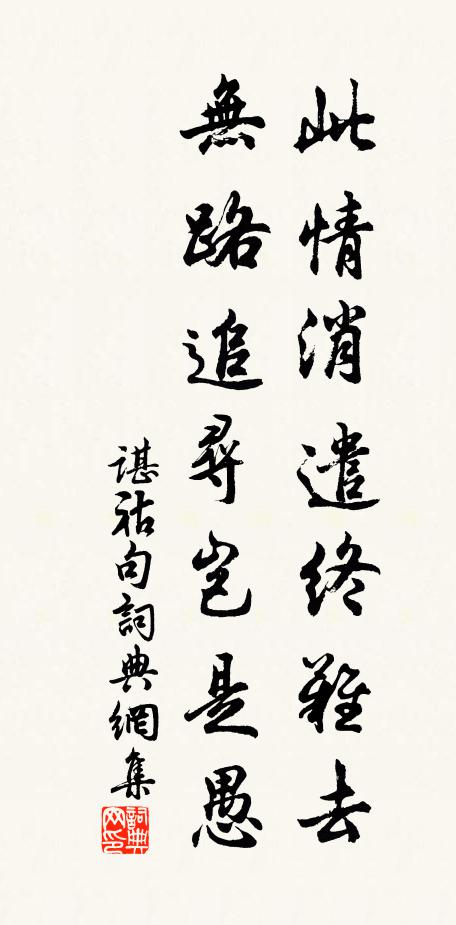 此情消遣終難去
無路追尋豈是愚
諶祜句詞典網集
詞典網印